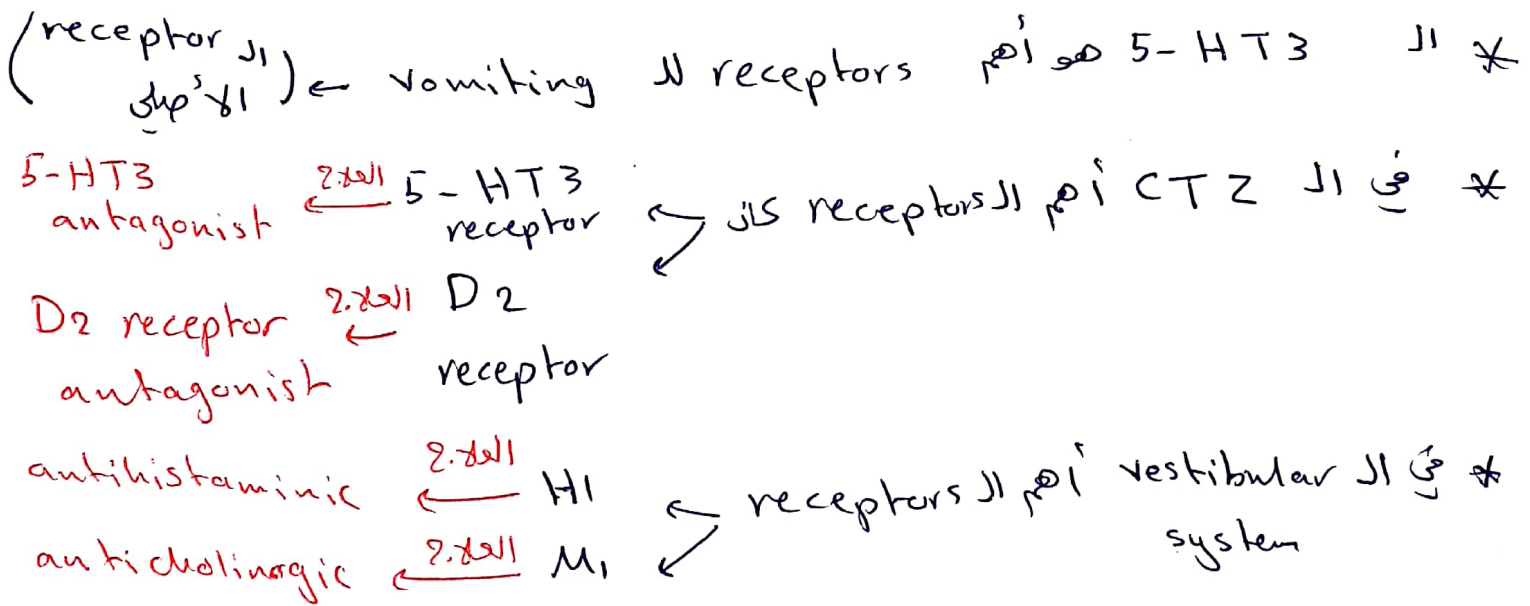 * ال 5-HT3 هو أهم receptors لل vomiting ← (ال receptor الأصلي)
* في ال CTZ أهم ال receptors كان
5-HT3 receptor ← العلاج 5-HT3 antagonist
D2 receptor ← العلاج D2 receptor antagonist
* في ال vestibular system أهم ال receptors
H1 ← العلاج antihistaminic
M1 ← العلاج anticholinergic